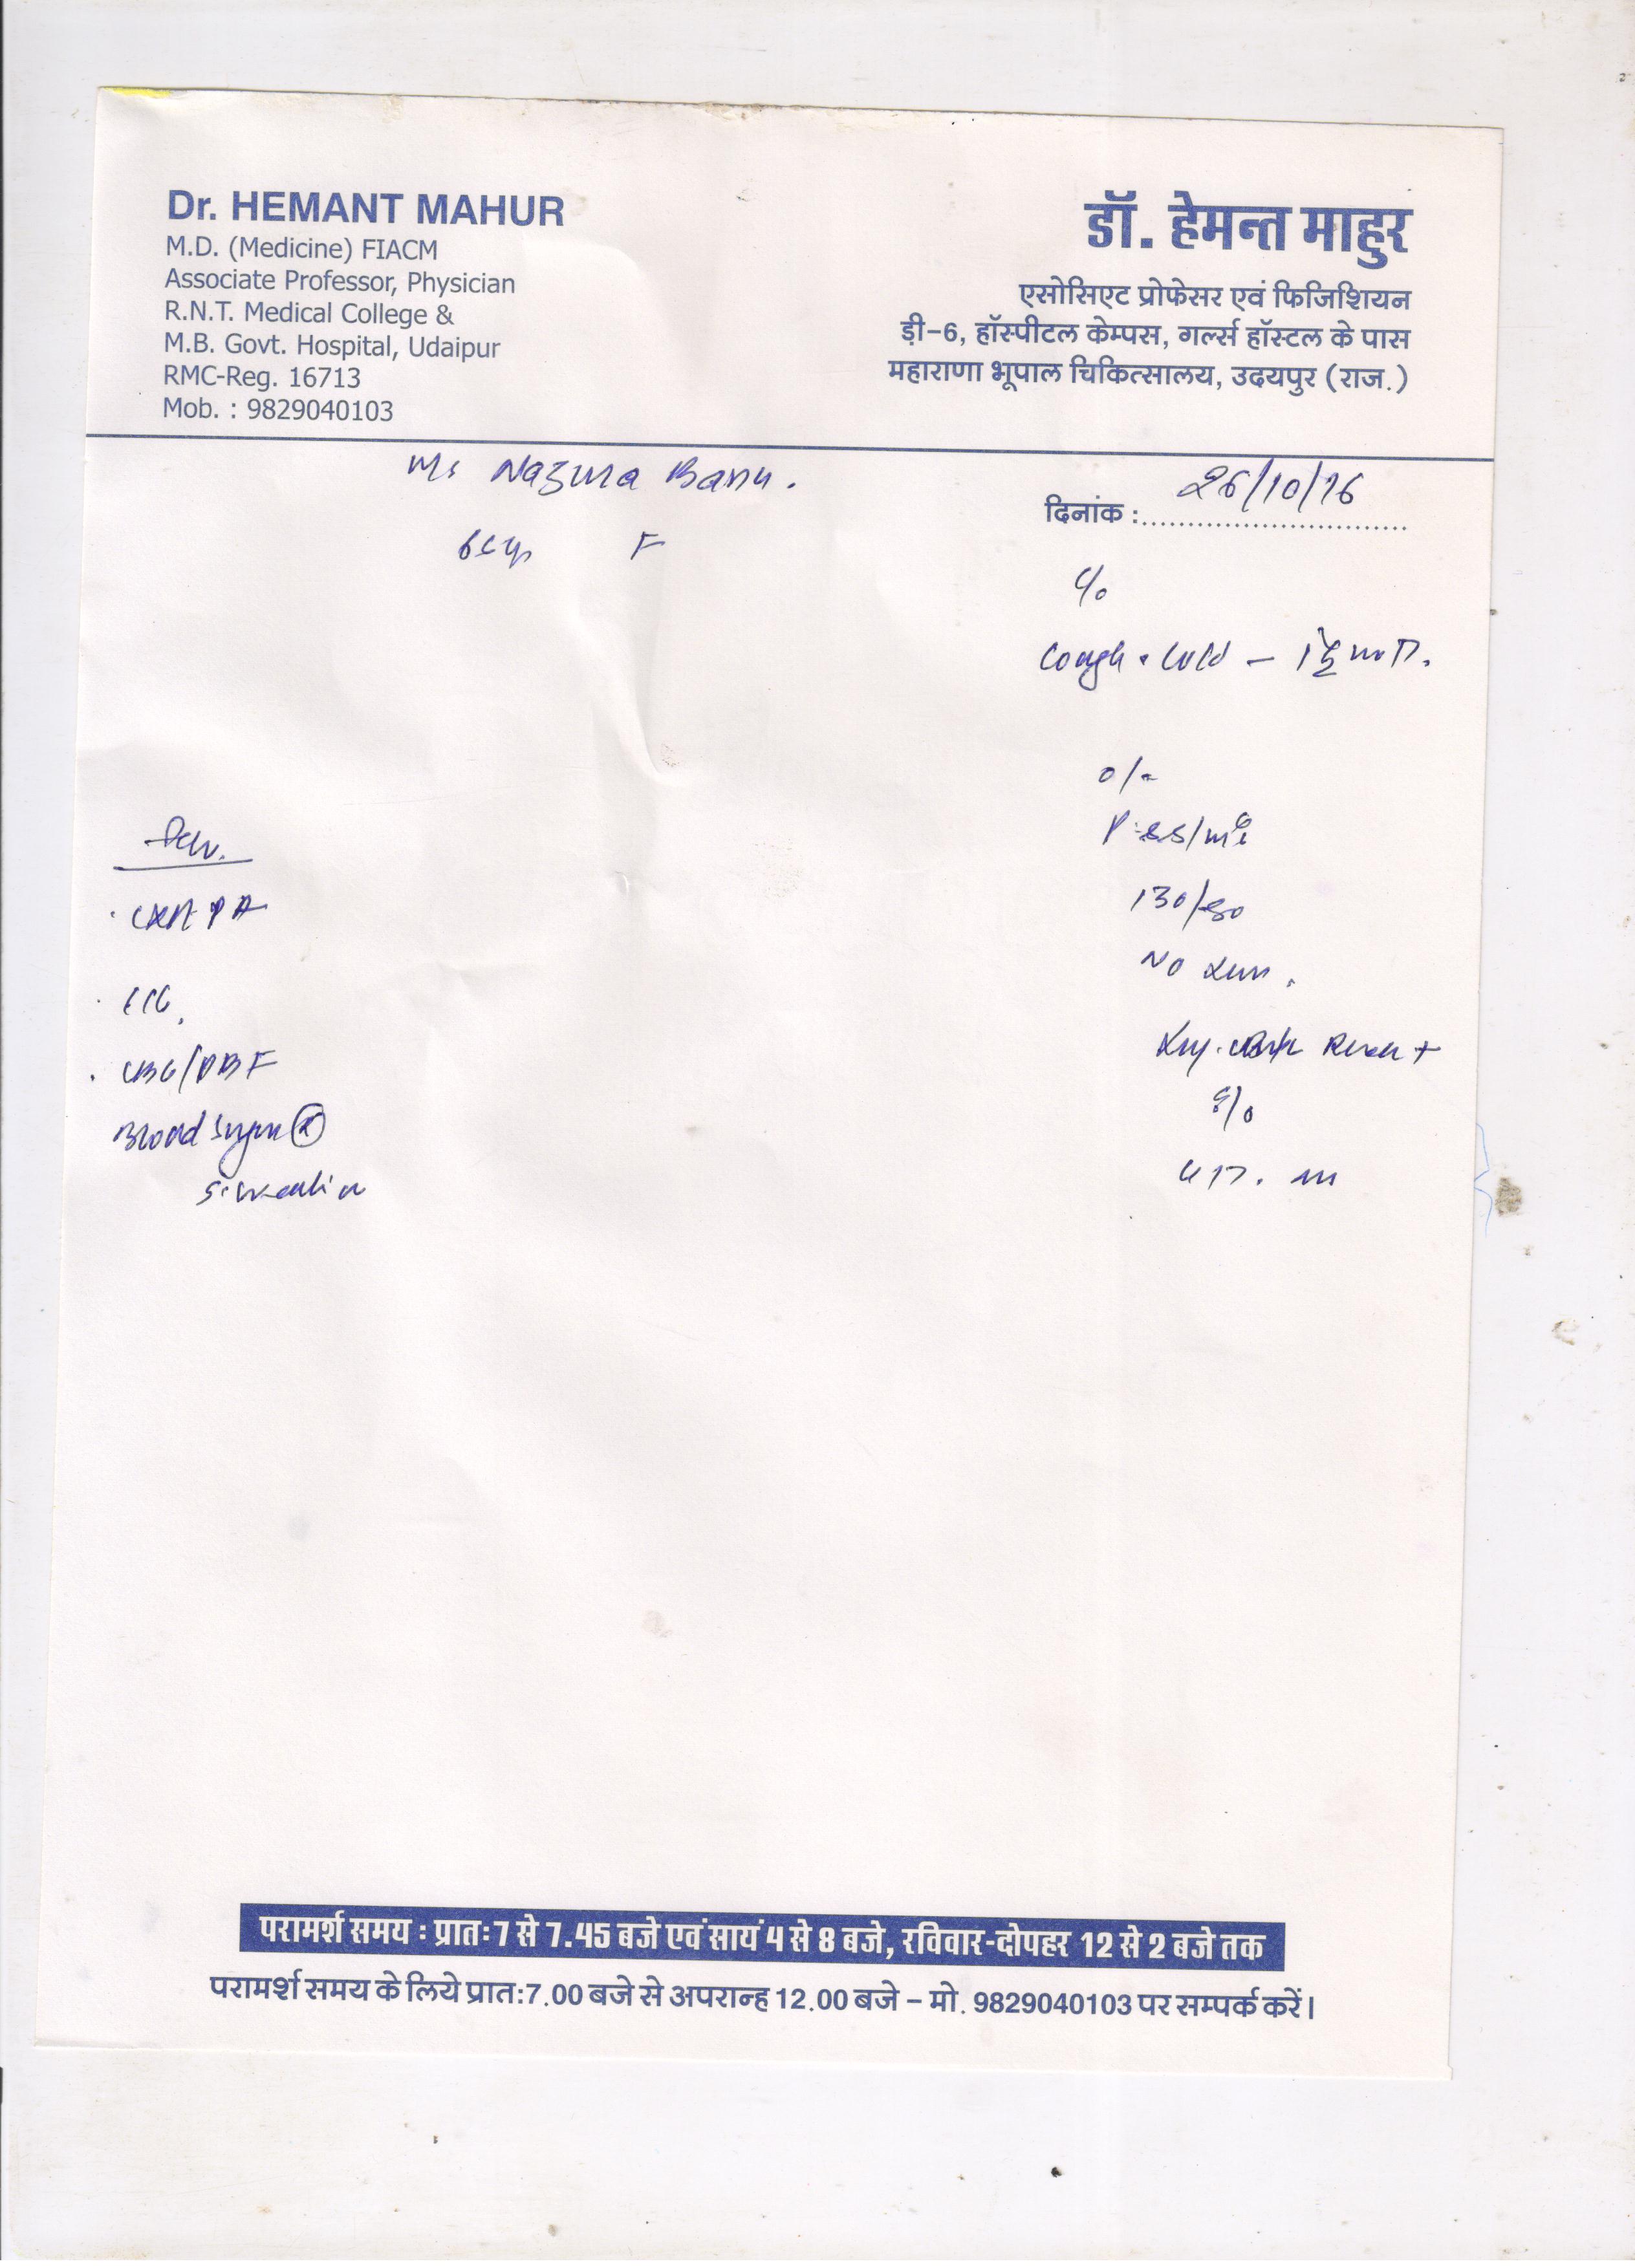 Dr. HEMANT MAHUR
M.D. (Medicine) FIACM
Associate Professor, Physician
R.N.T. Medical College &
M.B. Govt. Hospital, Udaipur
RMC-Reg. 16713
Mob. : 9829040103
डॉ. हेमन्त माहुर
एसोसिएट प्रोफेसर एवं फिजिशियन
ड़ी-6, हॉस्पीटल केम्पस, गर्ल्स हॉस्टल के पास
महाराणा भूपाल चिकित्सालय, उदयपुर (राज.)
Banu.
दिनांक : 26/10/16
F
c/o
Cough. Cold –
o/e
130/80
No
CXR PA
ECG.
CBC/PBF
Blood Sugar (R)
S. creatinin
S/o
परामर्श समय : प्रातः 7 से 7.45 बजे एवं सायं 4 से 8 बजे, रविवार-दोपहर 12 से 2 बजे तक
परामर्श समय के लिये प्रातः7.00 बजे से अपरान्ह 12.00 बजे – मो. 9829040103 पर सम्पर्क करें।